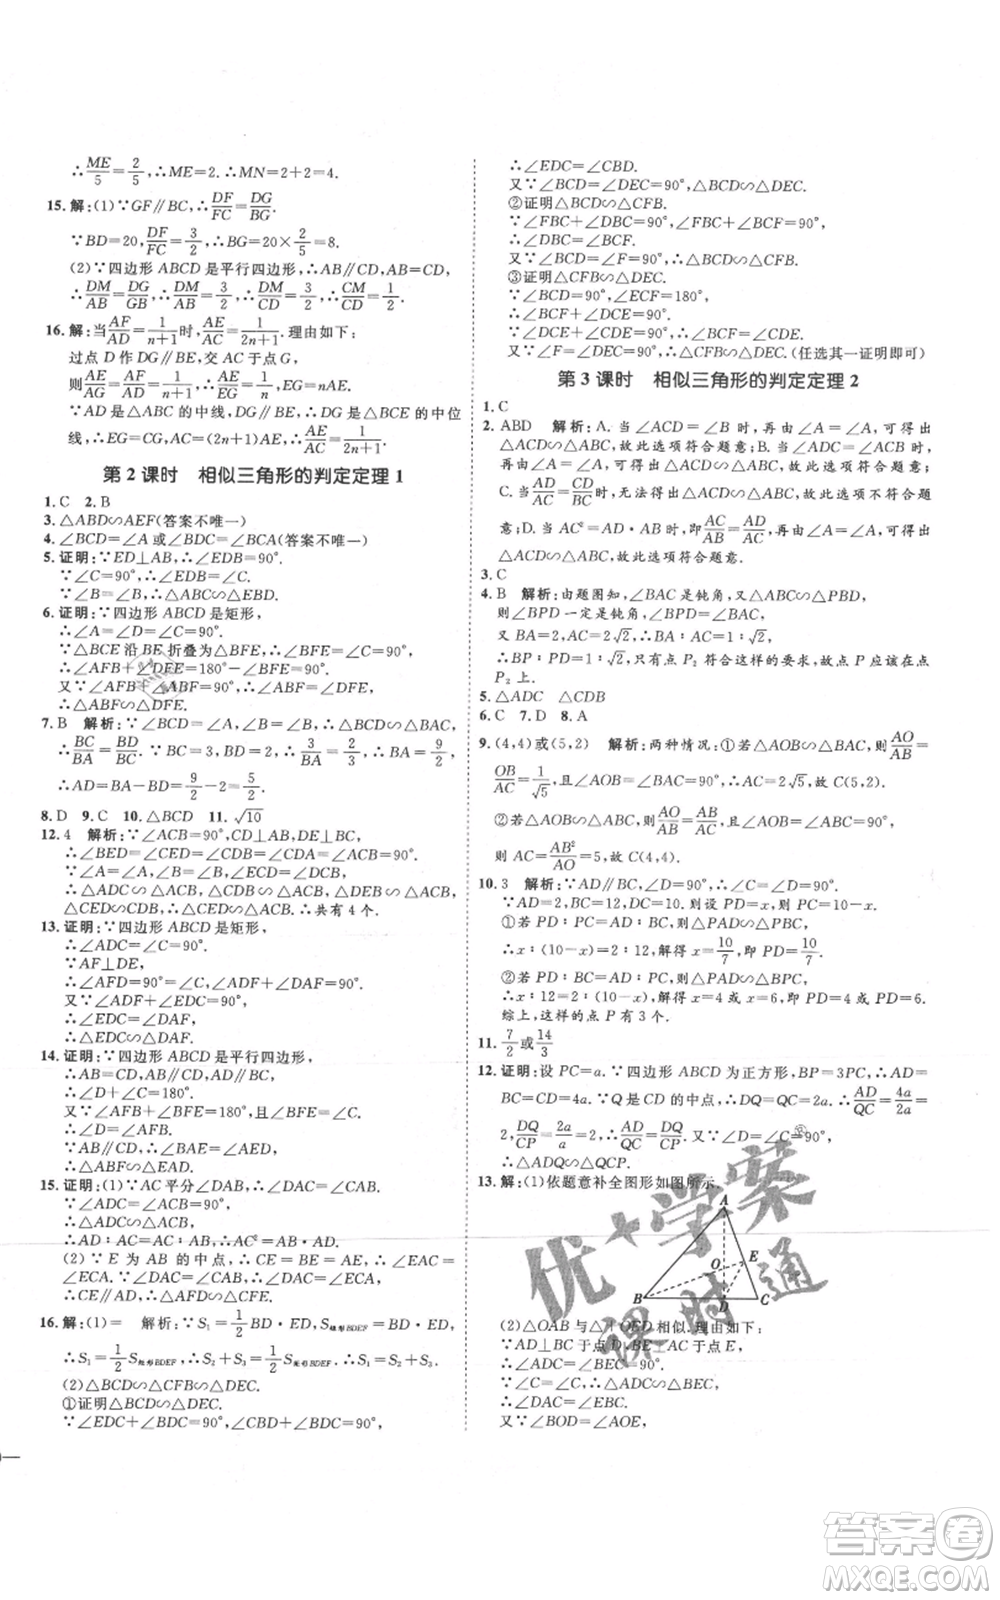 ∴ME/5=2/5,∴ME=2.∴MN=2+2=4.
15.解:(1)∵GF∥BC,∴DF/FC=DG/BG.
∵BD=20,DF/FC=3/2,∴BG=20×2/5=8.
(2)∵四边形ABCD是平行四边形,∴AB∥CD,
∴DM/AB=DG/GB,∴DM/AB=3/2,∴DM/CD=3/2,∴CM/CD=1/2.
16.解:当AF/AD=1/(n+1)时,AE/AC=1/(2n+1).理由如下:
过点D作DG∥BE,交AC于点G,
则AE/AG=AF/AD=1/(n+1),∴AE/EG=1/n,EG=nAE.
∵AD是△ABC的中线,DG∥BE,∴DG是△BCE的中位
线,∴EG=CG,AC=(2n+1)AE,∴AE/AC=1/(2n+1).
第2课时 相似三角形的判定定理1
1.C 2.B
3.△ABD∽AEF(答案不唯一)
4.∠BCD=∠A或∠BDC=∠BCA(答案不唯一)
5.证明:∵ED⊥AB,∴∠EDB=90°.
∵∠C=90°,∴∠EDB=∠C.
∵∠B=∠B,∴△ABC∽△EBD.
6.证明:∵四边形ABCD是矩形,
∴∠A=∠D=∠C=90°.
∵△BCE沿BE折叠为△BFE,∴∠BFE=∠C=90°.
∴∠AFB+∠DFE=180°-∠BFE=90°.
又∵∠AFB+∠ABF=90°,∴∠ABF=∠DFE,
∴△ABF∽△DFE.
7.B 解析:∵∠BCD=∠A,∠B=∠B,∴△BCD∽△BAC,
∴BC/BA=BD/BC.∵BC=3,BD=2,∴3/BA=2/3,∴BA=9/2,
∴AD=BA-BD=9/2-2=5/2.
8.D 9.C 10.△BCD 11.√10
12.4 解析:∵∠ACB=90°,CD⊥AB,DE⊥BC,
∴∠BED=∠CED=∠CDB=∠CDA=∠ACB=90°.
∴△ADC∽△ACB,△CDB∽△ACB,
△CED∽△ACB,△DEB∽△ACB.∴共有4个.
13.证明:∵四边形ABCD是矩形,
∴∠ADC=∠C=90°.
∵AF⊥DE,
∴∠AFD=90°=∠C.
又∵∠ADF+∠CDE=90°,∠ADF+∠DAF=90°,
∴∠EDC=∠DAF.
∴△DEC∽△ADF.
14.证明:∵四边形ABCD是平行四边形,
∴∠D+∠C=180°.
又∵∠AFB+∠BFE=180°,且∠BFE=∠C,
∴∠D=∠AFB.
∵AB∥CD,∴∠BAE=∠AED,
∴△ABF∽△EAD.
15.证明:(1)∵AC平分∠DAB,∴∠DAC=∠CAB.
又∵∠ADC=∠ACB=90°,
∴△ADC∽△ACB,
∴AD:AC=AC:AB,∴AC²=AB·AD.
(2)∵E为AB的中点,∴CE=EB=AE,∴∠EAC=
∠ECA.∵∠DAC=∠CAB,∴∠DAC=∠ECA,
∴CE∥AD,∴△AFD∽△CFE.
16.解:(1)= 解析:∵S₁=1/2BD·ED,S矩形BDEF=BD·ED,
∴S₁=1/2S矩形BDEF,∴S₂+S₃=1/2S矩形BDEF,∴S₁=S₂+S₃.
(2)△BCD∽△CFB∽△DEC.
①证明△BCD∽△DEC.
∵∠EDC+∠BDC=90°,∠CBD+∠BDC=90°,
∴∠EDC=∠CBD.
又∵∠BCD=∠DEC=90°,∴△BCD∽△DEC.
②证明△BCD∽△CFB.
∵∠FBC+∠DBC=90°,∠FBC+∠BCF=90°,
∴∠DBC=∠BCF.
又∵∠BCD=∠F=90°,∴△BCD∽△CFB.
③证明△CFB∽△DEC.
∵∠BCD=90°,∠ECF=180°,
∴∠DCE+∠BCF=90°.
∵∠DCE+∠CDE=90°,∴∠BCF=∠CDE.
又∵∠F=∠E=90°,∴△CFB∽△DEC.(任选其一证明即可)
第3课时 相似三角形的判定定理2
1.C
2.ABD 解析:A.当∠ACD=∠B时,再由∠A=∠A,可得出
△ACD∽△ABC,故此选项符合题意;B.当∠ADC=∠ACB
时,再由∠A=∠A,可得出△ACD∽△ABC,故此选项符合题意;
C.当AD/AC=CD/BC时,无法得出△ACD∽△ABC,故此选项不符合题
意;D.当AC²=AD·AB时,即AC/AB=AD/AC,再由∠A=∠A,可得出
△ACD∽△ABC,故此选项符合题意.
3.C
4.B 解析:由题图知,∠BAC是钝角,又△ABC∽△PBD,
则∠BPD一定是钝角,∠BPD=∠BAC,
又BA=2,AC=2√2,∴BA:AC=1:√2,
∴BP:PD=1:√2,只有点P₂符合这样的要求,故点P应该在点
P₂上.
5.△ADC △CDB
6.C 7.D 8.A
9.(4,4)或(5,2) 解析:两种情况:①若△AOB∽△BAC,则AO/AB=
OB/AC=1/√5,且∠AOB=∠BAC=90°;∴AC=2√5,故C(5,2)
②若△AOB∽△ABC,且∠AOB=∠ABC=90°,AO/AB=AB/AC,
则AC=AB²/AO=5,故C(4,4).
10.3 解析:∵AD∥BC,∠D=90°,∴∠C=∠D=90°.
∵AD=2,BC=12,DC=10.则设PD=x,则PC=10-x
①若PD:PC=AD:BC,则△PAD∽△PBC,
∴x:(10-x)=2:12,解得x=10/7,即PD=10/7.
②若PD:BC=AD:PC,则△PAD∽△BPC,
∴x:12=2:(10-x),解得x=4或x=6,即PD=4或PD=6.
综上,这样的点P有3个.
11.7/2或14/3
12.证明:设PC=a.∵四边形ABCD为正方形,BP=3PC,∴AD=
BC=CD=4a.∵Q是CD的中点,∴DQ=CQ=2a.∴AD/QC=4a/2a=
2,DQ/CP=2a/a=2,∴AD/QC=DQ/CP.又∵∠D=∠C=90°,
∴△ADQ∽△QCP.
13.解:(1)依题意补全图形如图所示.
A
E
O
B D C
(2)△OAB与△OED相似.理由如下:
∵AD⊥BC于点D,BE⊥AC于点E,
∴∠ADC=∠BEC=90°.
又∵∠C=∠C,∴△ADC∽△BEC,
∴∠DAC=∠EBC.
又∵∠BOD=∠AOE,
优+学案
课时通
答案卷
www.mofangge.com